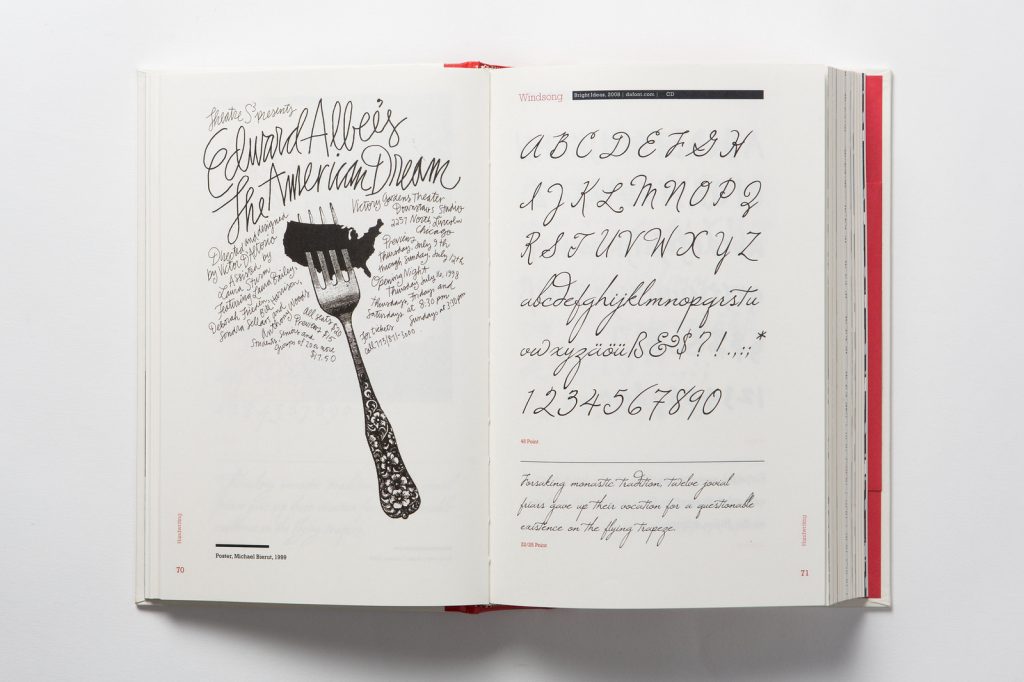 Theatre S³ presents
Edward Albee's
The American Dream
Directed and designed
by Victor D'Altorio
Assisted by
Laura Sturm
Featuring Laura Bailey,
Deborah
Bill Harrison,
Sondra Sellars and
Anthony Woods
All seats $20
Previews $15
Students, Seniors and
groups of 20 or more
$17.50
Victory Gardens Theater
Downstairs Studio
2257 North Lincoln
Chicago
Previews
Thursday, July 9th
through Sunday, July 12th
Opening Night
Thursday July 16, 1998
Thursdays, Fridays, and
Saturdays at 8:30 pm
Sundays at 3:30 pm
For tickets
call 773/871-3000
Handwriting
Poster, Michael Bierut, 1999
70
Windsong
Bright Ideas, 2008 | dafont.com | CD
A B C D E F G H
I J K L M N O P Q
R S T U V W X Y Z
abcdefghijklmnopqrstu
vwxyzäöüß&$?!.,:; *
1234567890
48 Point
Forsaking monastic tradition, twelve jovial
friars gave up their vocation for a questionable
existence on the flying trapeze.
22/25 Point
Handwriting
71